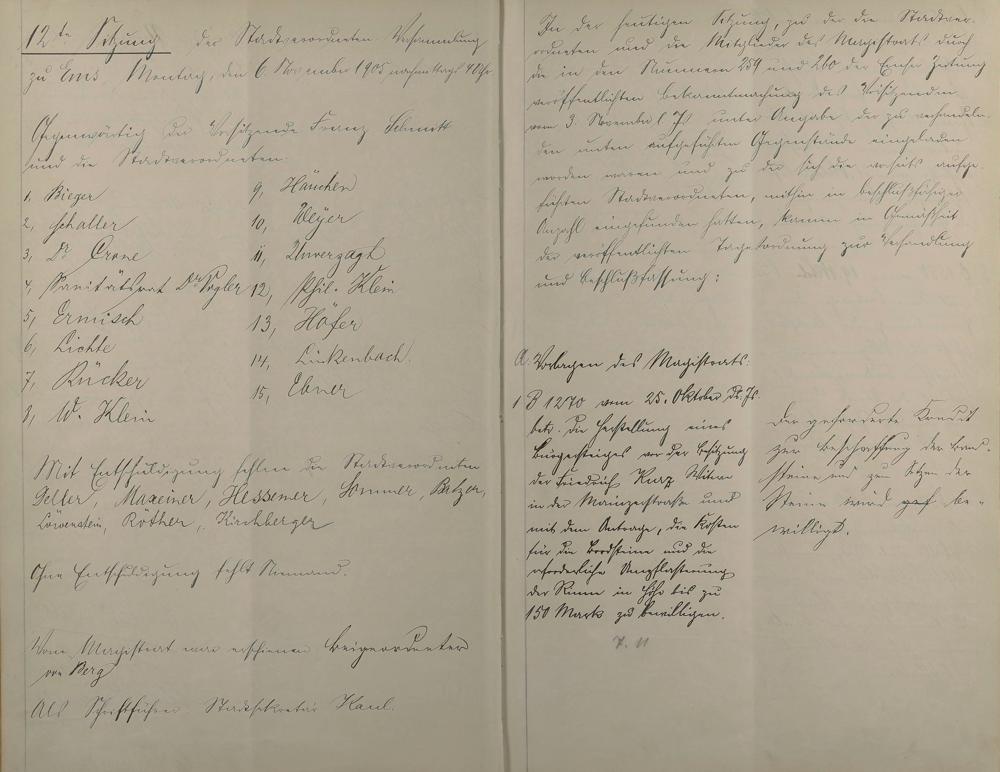 12te Sitzung der Stadtverordneten Versammlung
zu Ems, Montag, den 6. November 1905 nachmittags 4 Uhr.
Gegenwärtig der Vorsitzende Franz Schmitt
und die Stadtverordneten:
1, Bieger
2, Schaller
3, Dr Crone
4, Sanitätsrat Dr Vogler
5, Ermisch
6, Lichte
7, Rücker
8, W. Klein
9, Häuchen
10, Weyer
11, Unverzagt
12, Phil. Klein
13, Höfer
14, Linkenbach.
15, Ebner
Mit Entschuldigung fehlen die Stadtverordneten
Maxeiner, Hessemer, Sommer, Balzer,
Löwenstein, Röther, Kirchberger
Ohne Entschuldigung fehlt Niemand.
Vom Magistrat war erschienen Beigeordneter
von Berg
Als Schriftführer Stadtsekretär Kaul.
In der heutigen Sitzung, zu der die Stadtver-
ordneten und die Mitglieder des Magistrats durch
die in den Nummern 259 und 260 der Emser Zeitung
veröffentlichten Bekanntmachung des Vorsitzenden
vom 3. November l Js unter Angabe der zu verhandeln-
den unten aufgeführten Gegenstände eingeladen
worden waren und zu der sich die vorseits aufge-
führten Stadtverordneten, mithin in beschlußfähiger
Anzahl eingefunden hatten, kamen in Gemäßheit
der veröffentlichten Tagesordnung zur Verhandlung
und Beschlußfassung:
A. Vorlagen des Magistrats.
1 B 1270 vom 25. Oktober ds. Js.
betr. die Herstellung eines
Bürgersteiges vor der Besitzung
der Friedrich Kurz Witwe
in der Mainzerstraße und
mit dem Antrage, die Kosten
für die Bordsteine und die
erforderliche Umpflasterung
der Rinne in Höhe bis zu
150 Mark zu bewilligen.
Der geforderte Kredit
zur Beschaffung der Bord-
steine und zum Setzen der
Steine wird be-
willigt.
7. 11